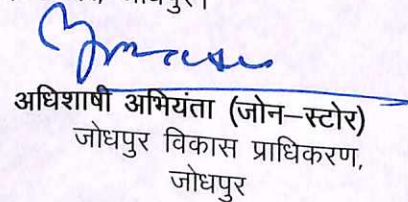 जोधपुर।
अधिशाषी अभियंता (जोन–स्टोर)
जोधपुर विकास प्राधिकरण,
जोधपुर